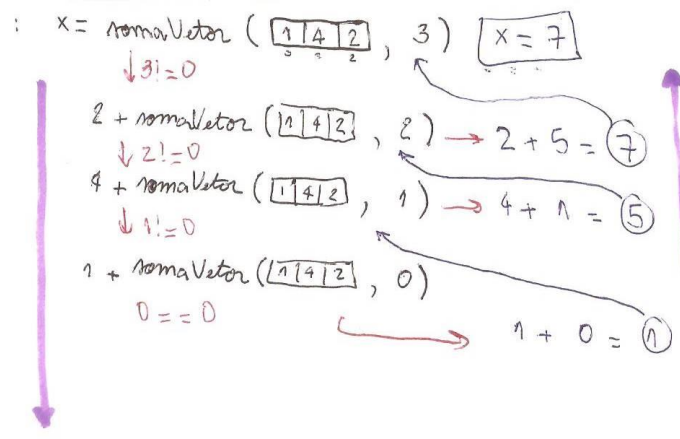 : x = somaVetor ( 1 4 2 , 3 ) x = 7
↓ 3! = 0
2 + somaVetor ( 1 4 2 , 2 ) → 2 + 5 = 7
↓ 2! = 0
4 + somaVetor ( 1 4 2 , 1 ) → 4 + 1 = 5
↓ 1! = 0
1 + somaVetor ( 1 4 2 , 0 )
0 == 0
→ 1 + 0 = 1